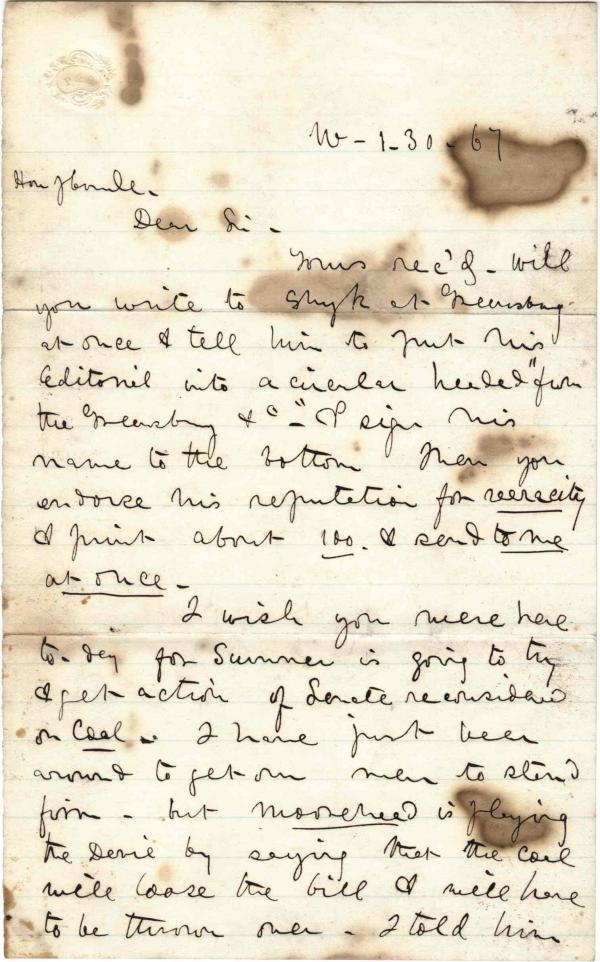 W - 1-30-67
Hon
Dear Sir -
Yours rec'd - will
you write to at Greensburg
at once & tell him to put his
Editoriel into a circular headed "from
the Greensburg &c" - & sign his
name to the bottom Then you
endorse his reputation for veracity
& print about 100. & send to me
at once -
I wish you were here
to-day for Sumner is going to try
& get action of Senate reconsidered
on Coal - I have just been
around to get our men to stand
firm - but Moorehead is playing
the Devil by saying that the Coal
will loose the bill & will have
to be thrown over - I told him